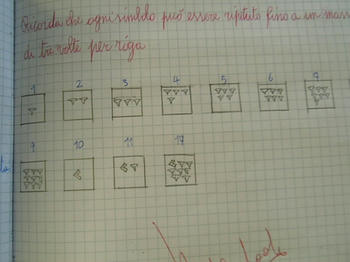 Ricorda che ogni simbolo può essere ripetuto fino a un mass
di tre volte per riga
1 2 3 4 5 6 7
9 10 11 17